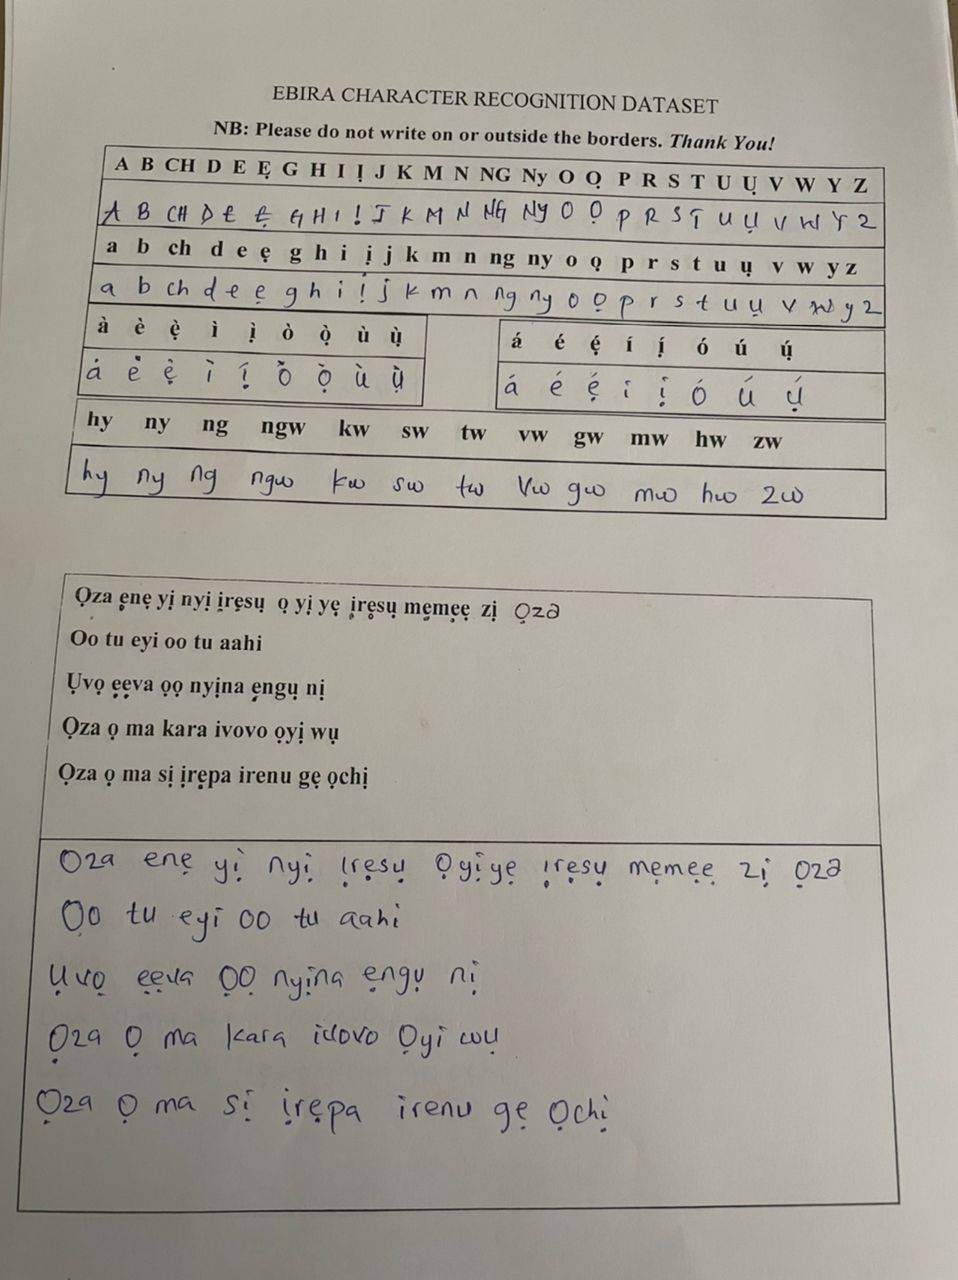 EBIRA CHARACTER RECOGNITION DATASET
NB: Please do not write on or outside the borders. Thank You!
A B CH D E Ẹ G H I Ị J K M N NG Ny O Ọ P R S T U Ụ V W Y Z
A B CH D E Ẹ G H I Ị J K M N NG Ny O Ọ P R S T U Ụ V W Y Z
a b ch d e ẹ g h i ị j k m n ng ny o ọ p r s t u ụ v w y z
a b ch d e ẹ g h i ị j k m n ng ny o ọ p r s t u ụ v w y z
à è ẹ̀ ì ị̀ ò ọ̀ ù ụ̀ á é ẹ́ í ị́ ó ú ụ́
á è ẹ̀ ì ị́ ò ọ̀ ù ụ̀ á é ẹ́ í ị́ ó ú ụ́
hy ny ng ngw kw sw tw vw gw mw hw zw
hy ny ng ngw kw sw tw vw gw mw hw zw
Ọza ẹnẹ yị nyị ịrẹsụ ọ yị yẹ ịrẹsụ mẹmẹẹ zị Ọza
Oo tu eyi oo tu aahi
Ụvọ ẹẹva ọọ nyịna ẹngụ nị
Ọza ọ ma kara ivovo ọyị wụ
Ọza ọ ma sị ịrẹpa irenu gẹ ọchị
Oza enẹ yị nyị ịrẹsụ Ọyịyẹ ịrẹsụ mẹmẹẹ zị Ọza
Ọo tu eyi oo tu aahi
Ụvọ ẹẹva ỌỌ nyịna ẹngụ nị
Ọza Ọ ma kara ivovo Ọyi wụ
Ọza Ọ ma sị ịrẹpa irenu gẹ Ọchị